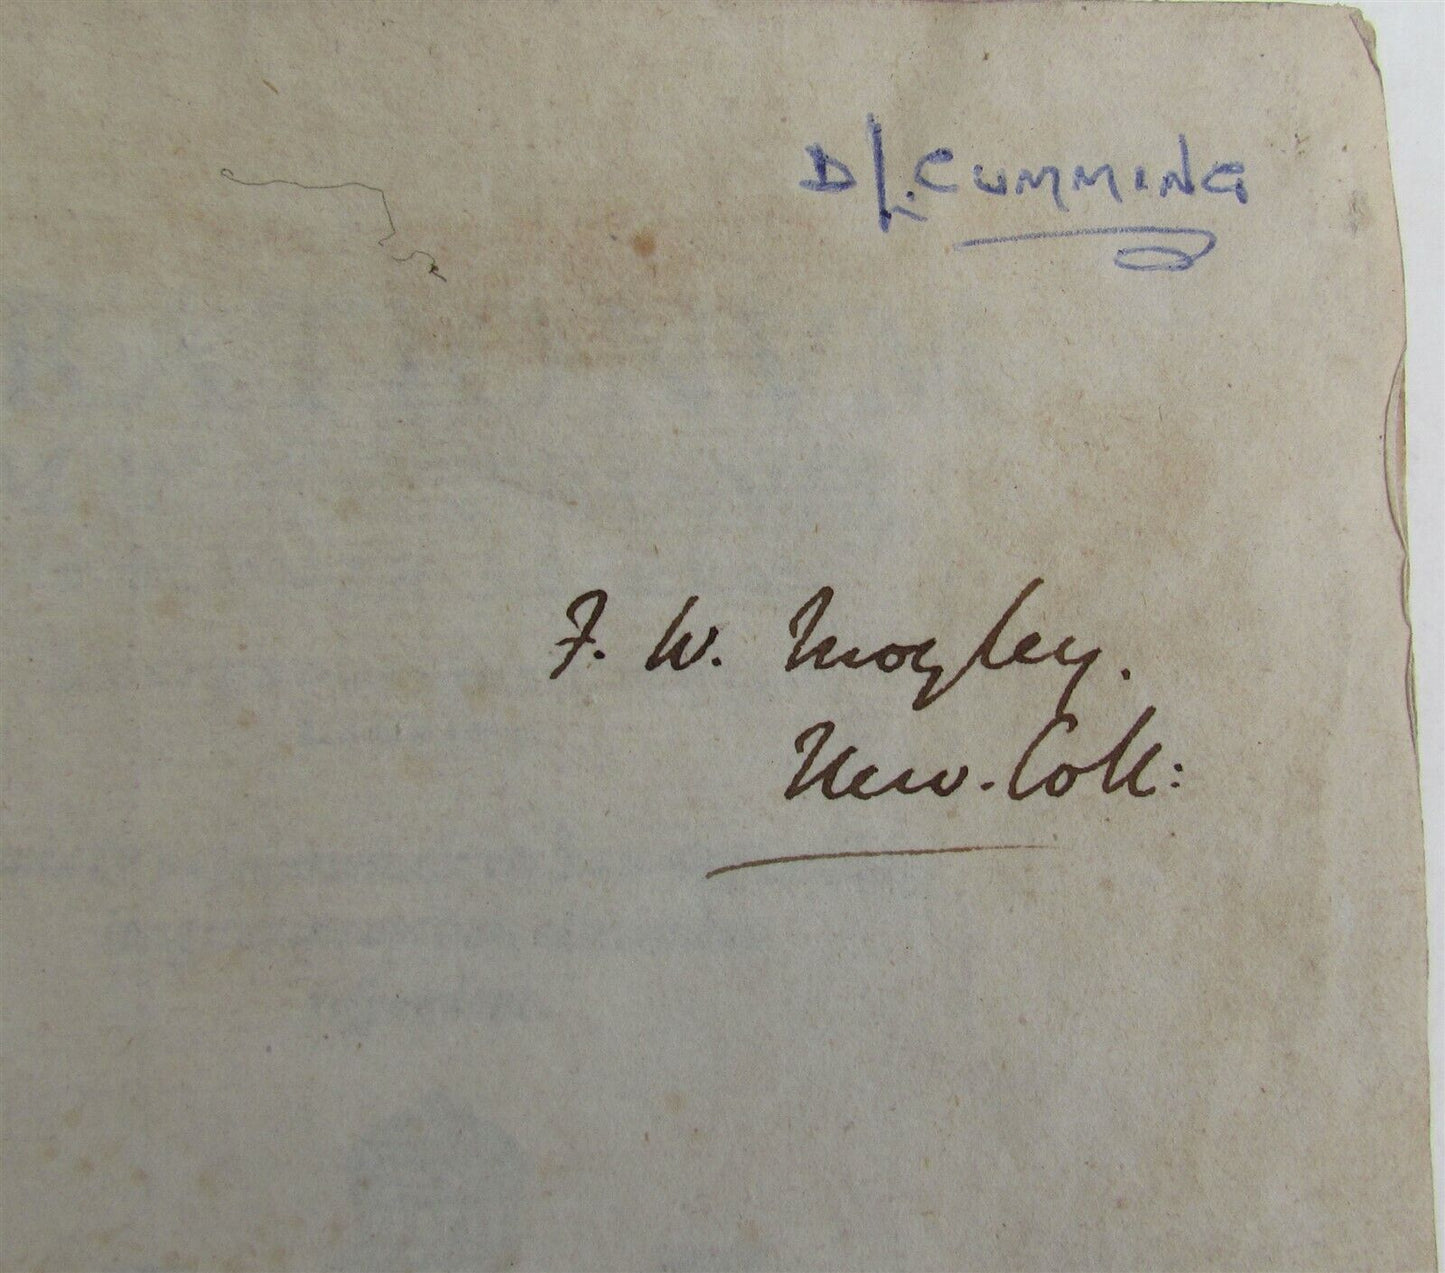 D L. CUMMING
F. W. Mogley.
New. Coll: